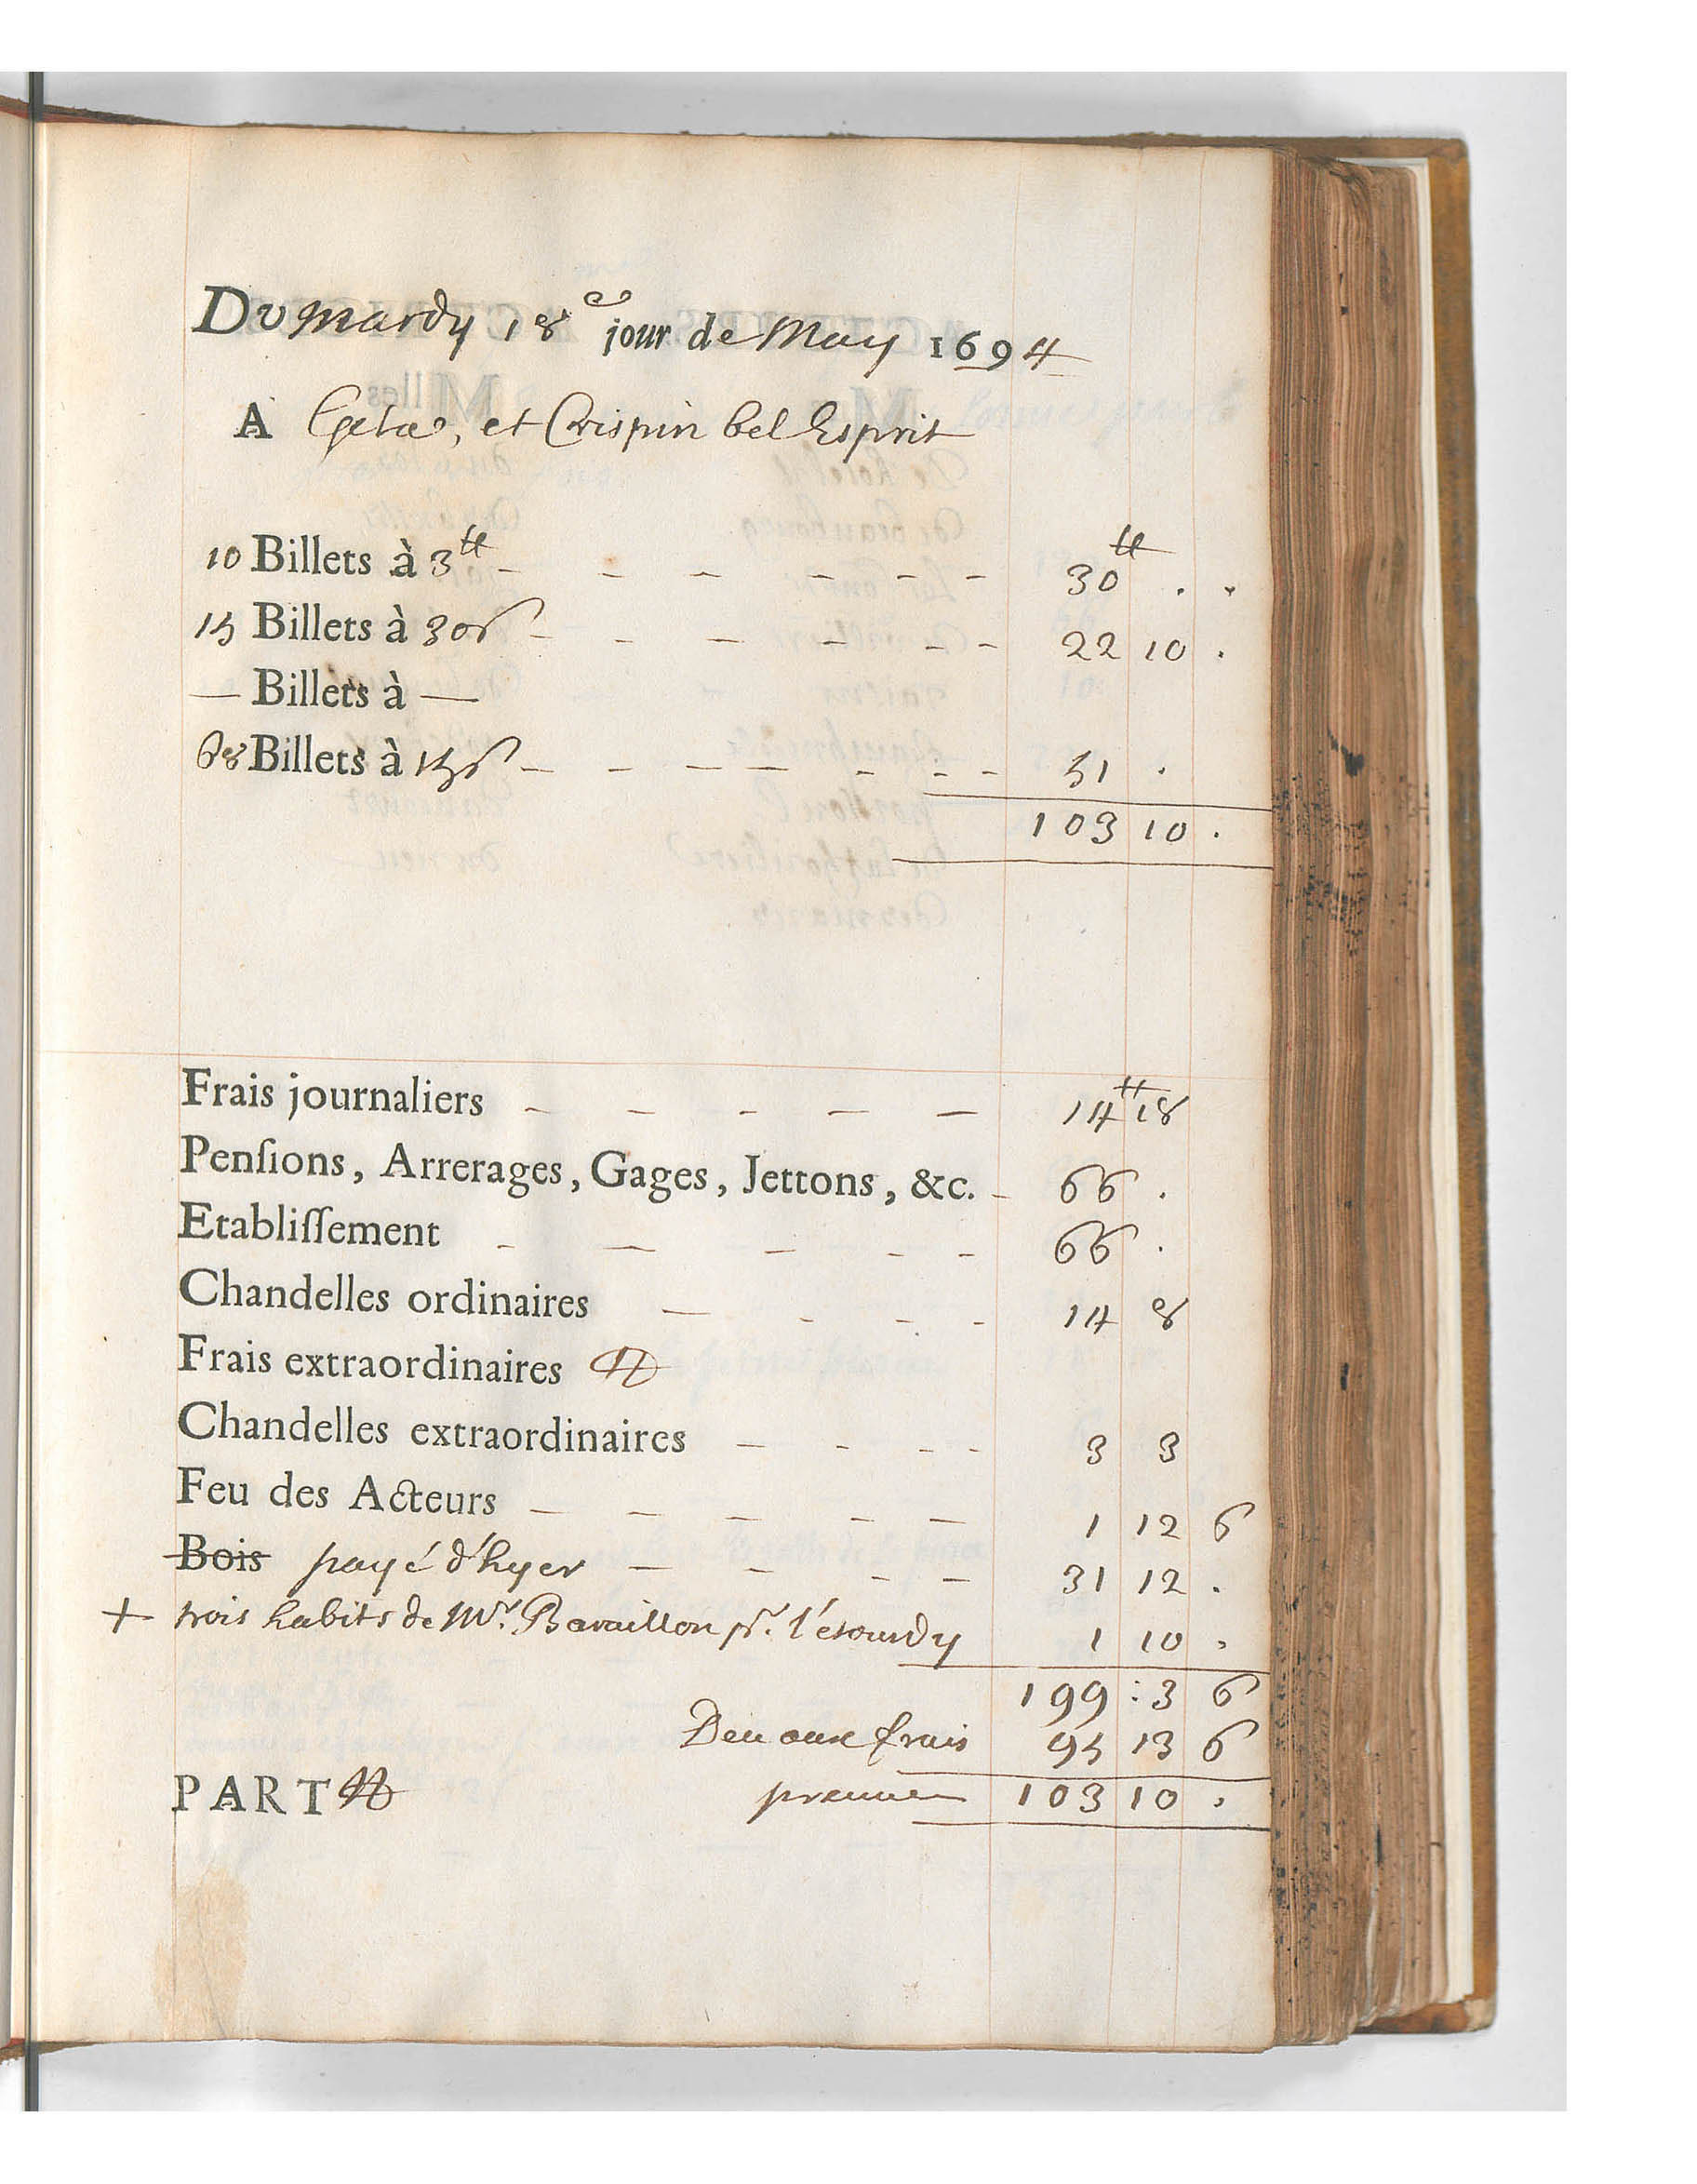 Du mardy 18e jour de May 1694
A Geta, et Crispin bel Esprit
10 Billets à 3tt - - - - - - 30tt . .
15 Billets à 30s - - - - - - 22 10 .
— Billets à —
68 Billets à 15s - - - - - - - 51 .
103 10 .
Frais journaliers - - - - - 14tt 18
Penſions, Arrerages, Gages, Jettons, &c. - 66 .
Etabliſſement - - - - - 66 .
Chandelles ordinaires - - - - 14 8
Frais extraordinaires
Chandelles extraordinaires - - - - 3 3
Feu des Acteurs - - - - - 1 12 6
Bois payé d'hyer - - - - 31 12 .
+ trois habits de Mr. Baraillon pr. l'étourdy 1 10 .
199 : 3 6
Deu aux frais 95 13 6
PART 103 10 .